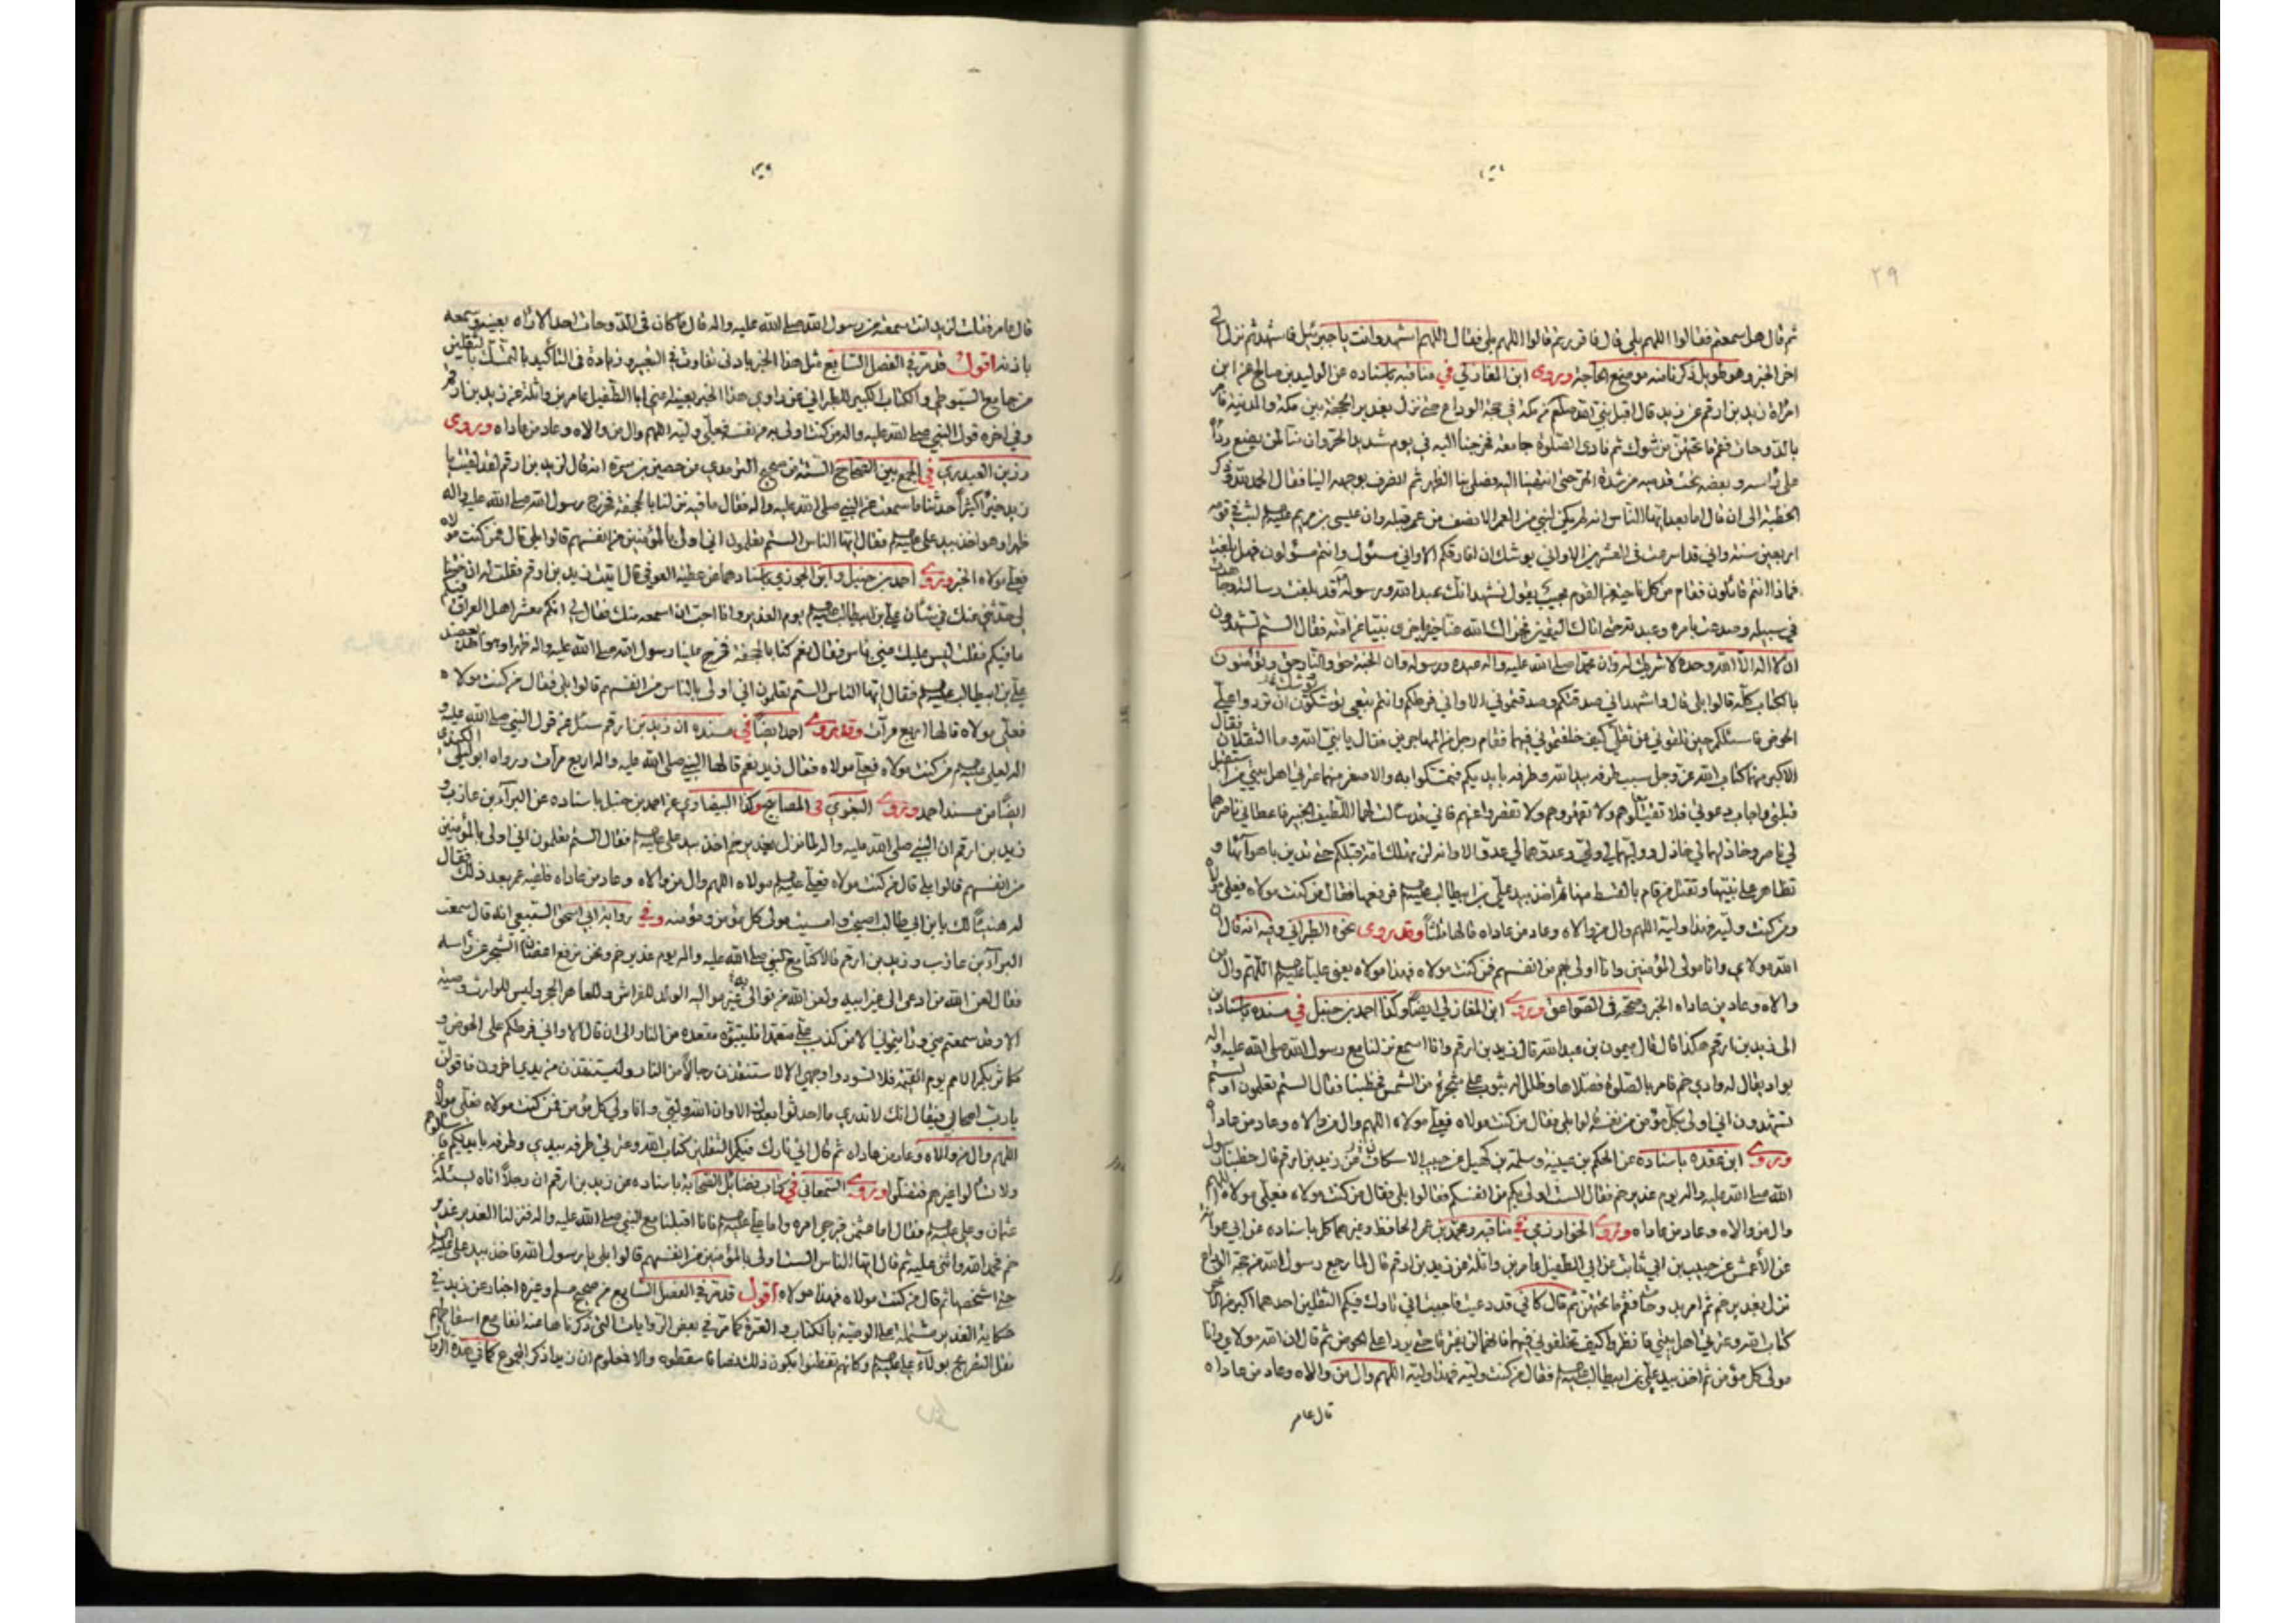 ٢٩
ثم قال هل سمعتم فقالوا اللهم بلى قال فاقررتم قالوا اللهم بلى فقال اللهم اشهد وانت يا جبرئيل فاشهد ثم نزل
اخر الخبر وهو طويل ذكرنا منه موضع الحاجة وروى ابن المغازلي في مناقبه باسناده عن الوليد بن صالح عن ابن
امرأة زيد بن ارقم عن زيد قال اقبل نبي الله من مكة في حجة الوداع حتى نزل بغدير الجحفة بين مكة والمدينة فامر
بالدوحات فقم ما تحتهن من شوك ثم نادى الصلوة جامعة فخرجنا اليه في يوم شديد الحر وان منا لمن يضع رداه
على رأسه وبعضه تحت قدميه من شدة الحر حتى انتهينا اليه فصلى بنا الظهر ثم انصرف بوجهه الينا فقال الحمد لله
الخطبة الى ان قال اما بعد ايها الناس انه لم يكن لنبي من العمر الا نصف من عمر قبله وان عيسى بن مريم لبث في قومه
اربعين سنة واني قد اسرعت في العشرين الا واني يوشك ان افارقكم الا واني مسئول وانتم مسئولون فهل بلغت
فماذا انتم قائلون فقام من كل ناحية من القوم مجيب يقول نشهد انك عبد الله ورسوله قد بلغت رسالته وجاهدت
في سبيله وصدعت بامره وعبدته حتى اتاك اليقين فجزاك الله عنا خير ما جزى نبيا عن امته فقال الستم تشهدون
ان لا اله الا الله وحده لا شريك له وان محمدا صلى الله عليه واله عبده ورسوله وان الجنة حق والنار حق وتؤمنون
بالكتاب كله قالوا بلى قال واشهد اني صدقتكم وصدقتموني الا واني فرطكم وانتم تبعي توشكون ان تردوا علي
الحوض فاسئلكم حين تلقوني عن ثقلي كيف خلفتموني فيهما فقام رجل من المهاجرين فقال يا نبي الله وما الثقلان فقال
الاكبر منهما كتاب الله عز وجل سبب طرفه بيد الله وطرفه بايديكم فتمسكوا به والاصغر منهما عترتي اهل بيتي من استقبل
قبلتي واجاب دعوتي فلا تقتلوهم ولا تقهروهم ولا تقصروا عنهم فاني قد سألت لهما اللطيف الخبير فاعطاني ناصرهما
لي ناصر وخاذلهما لي خاذل ووليهما لي ولي وعدوهما لي عدو الا وانه لن تهلك امة قبلكم حتى تدين باهوائها و
تظاهر على نبيها وتقتل من قام بالقسط منها ثم اخذ بيد علي بن ابيطالب فرفعها فقال من كنت مولاه فعلي مولاه
ومن كنت وليه فهذا وليه اللهم وال من والاه وعاد من عاداه قالها ثلثا وقد روى نحوه الطبراني وفيه انه قال ان
الله مولاي وانا مولى المؤمنين وانا اولى بهم من انفسهم فمن كنت مولاه فهذا مولاه يعني عليا اللهم وال من
والاه وعاد من عاداه الخبر وصححه في الصواعق وروى ابن المغازلي ايضا وكذا احمد بن حنبل في مسنده باسناد
الى زيد بن ارقم هكذا قال قال ميمون بن عبد الله قال زيد بن ارقم وانا اسمع نزلنا مع رسول الله صلى الله عليه واله
بواد يقال له وادي خم فامر بالصلوة فصلاها وظلل له بثوب على شجرة من الشمس فخطبنا فقال الستم تعلمون او لستم
تشهدون اني اولى بكل مؤمن من نفسه قالوا بلى فقال من كنت مولاه فعلي مولاه اللهم وال من والاه وعاد من عاداه
وروى ابن عقدة باسناده عن الحكم بن عيينة وسلمة بن كهيل عن حبيب الاسكاف عن زيد بن ارقم قال خطبنا رسول
الله صلى الله عليه واله يوم غدير خم فقال الست اولى بكم من انفسكم فقالوا بلى فقال من كنت مولاه فعلي مولاه اللهم
وال من والاه وعاد من عاداه وروى الخوارزمي في مناقبه ومحمد بن عمر الحافظ وغيرهما كل باسناده عن ابي عوانة
عن الأعمش عن حبيب بن ابي ثابت عن ابي الطفيل عامر بن واثلة عن زيد بن ارقم قال لما رجع رسول الله من حجة الوداع
نزل بغدير خم ثم امر بدوحات فقم ما تحتهن ثم قال كاني قد دعيت فاجبت اني تارك فيكم الثقلين احدهما اكبر من الاخر
كتاب الله وعترتي اهل بيتي فانظروا كيف تخلفوني فيهما فانهما لن يفترقا حتى يردا على الحوض ثم قال ان الله مولاي وانا
مولى كل مؤمن ثم اخذ بيد علي بن ابيطالب فقال من كنت وليه فهذا وليه اللهم وال من والاه وعاد من عاداه
قال عامر
قال عامر فقلت لزيد انت سمعته من رسول الله صلى الله عليه واله قال ما كان في الدوحات احد الا رآه بعينه وسمعه
باذنه اقول قد مر في الفصل السابع مثل هذا الخبر بادنى تفاوت في التعبير وزيادة في التأكيد بالتمسك بالثقلين
من جامع السيوطي والكتاب الكبير للطبراني عن راوي هذا الخبر بعينه اعني ابا الطفيل عامر بن واثلة عن زيد بن ارقم
وفي اخره قول النبي صلى الله عليه واله من كنت اولى به من نفسه فعلي وليه اللهم وال من والاه وعاد من عاداه وروى
رزين العبدري في الجمع بين الصحاح الستة من صحيح الترمذي عن حصين بن سبرة انه قال لزيد بن ارقم لقد لقيت يا
زيد خيرا كثيرا حدثنا ما سمعت من النبي صلى الله عليه واله فقال ما فيه نزلنا بالجحفة فخرج رسول الله صلى الله عليه واله
ظهرا وهو اخذ بيد علي فقال ايها الناس الستم تعلمون اني اولى بالمؤمنين من انفسهم قالوا بلى قال فمن كنت مولاه
فعلي مولاه الخبر وروى احمد بن حنبل وابن الجوزي باسنادهما عن عطية العوفي قال اتيت زيد بن ارقم فقلت له ان ختنا
لي حدثني عنك في شأن علي بن ابيطالب يوم الغدير وانا احب ان اسمعه منك فقال لي انكم معشر اهل العراق فيكم
ما فيكم فقلت ليس عليك مني بأس فقال نعم كنا بالجحفة فخرج علينا رسول الله صلى الله عليه واله ظهرا وهو اخذ بعضد
علي بن ابيطالب فقال ايها الناس الستم تعلمون اني اولى بالناس من انفسهم قالوا بلى فقال من كنت مولاه
فعلي مولاه قالها اربع مرات وقد روى احمد ايضا في مسنده ان زيد بن ارقم سئل عن قول النبي صلى الله عليه و
اله لعلي من كنت مولاه فعلي مولاه فقال زيد نعم قالها النبي صلى الله عليه واله اربع مرات ورواه ابو ليلى الكندي
ايضا من مسند احمد وروى البغوي في المصابيح وكذا البيضاوي عن احمد بن حنبل باسناده عن البراء بن عازب و
زيد بن ارقم ان النبي صلى الله عليه واله لما نزل بغدير خم اخذ بيد علي فقال الستم تعلمون اني اولى بالمؤمنين
من انفسهم قالوا بلى قال من كنت مولاه فعلي مولاه اللهم وال من والاه وعاد من عاداه فلقيه عمر بعد ذلك فقال
له هنيئا لك يا بن ابي طالب اصبحت وامسيت مولى كل مؤمن ومؤمنة وفي رواية ابي اسحق السبيعي انه قال سمعت
البراء بن عازب وزيد بن ارقم قالا كنا مع النبي صلى الله عليه واله يوم غدير خم ونحن نرفع اغصان الشجر عن رأسه
فقال لعن الله من ادعى الى غير ابيه ولعن الله من توالى غير مواليه الولد للفراش وللعاهر الحجر وليس للوارث وصية
الا وقد سمعتم مني ورايتموني الا من كذب علي متعمدا فليتبوء مقعده من النار الى ان قال الا واني فرطكم على الحوض و
مكاثر بكم الامم يوم القيمة فلا تسودوا وجهي الا لاستنقذن رجالا من النار وليستنقذن من يدي اخرون فاقولن
يا رب اصحابي فيقال انك لا تدري ما احدثوا بعدك الا وان الله وليي وانا ولي كل مؤمن فمن كنت مولاه فعلي مولاه
اللهم وال من والاه وعاد من عاداه ثم قال اني تارك فيكم الثقلين كتاب الله وعترتي طرفه بيدي وطرفه بايديكم فاسئلوهم
ولا تسألوا غيرهم فتضلوا وروى السمعاني في كتاب فضائل الصحابة باسناده عن زيد بن ارقم ان رجلا اتاه يسئله عن
عثمان وعلي فقال اما عثمن فيرجى امره واما علي فانا اقبلنا مع النبي صلى الله عليه واله فنزلنا الغدير غدير
خم فحمد الله واثنى عليه ثم قال ايها الناس الست اولى بالمؤمنين من انفسهم قالوا بلى يا رسول الله فاخذ بيد علي
حتى اشخصها ثم قال من كنت مولاه فهذا مولاه اقول قد مر في الفصل السابع من صحيح مسلم وغيره اخبار عن زيد في
حكاية الغدير مشتملة على الوصية بالكتاب والعترة كما مر في بعض الروايات التي ذكرناها عنه انفا مع اسقاطهم
نقل التصريح بولاء علي وكانهم تفطنوا بكون ذلك نصا فاسقطوه والا فمعلوم ان زيدا ذكر المجموع كما في هذه الروايات